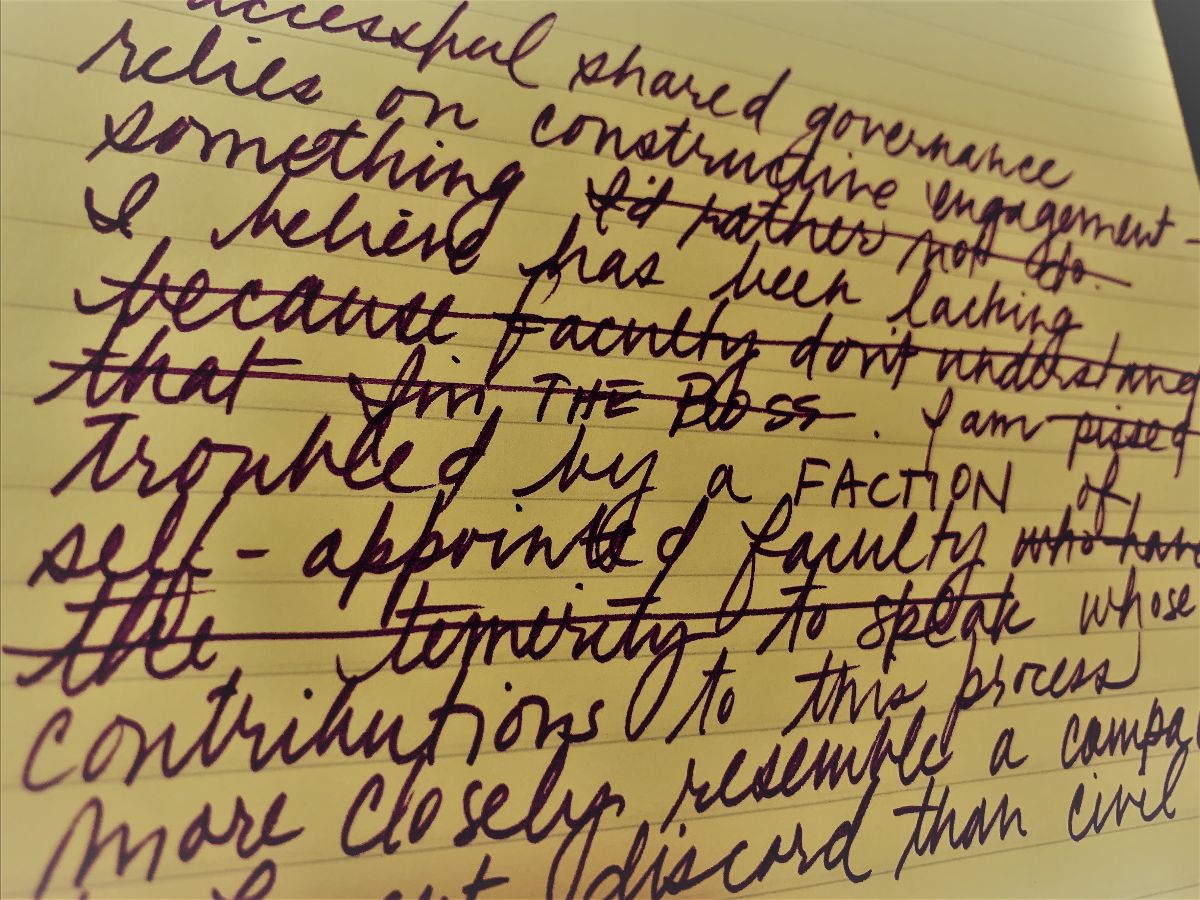 uccessful shared governance
relies on constructive engagement -
something I'd rather not do.
I believe has been lacking
because faculty don't understand
that I'm THE BOSS. I am pissed
troubled by a FACTION of
self-appointed faculty who have
the temerity to speak whose
contributions to this process
more closely resemble a campa
discord than civil